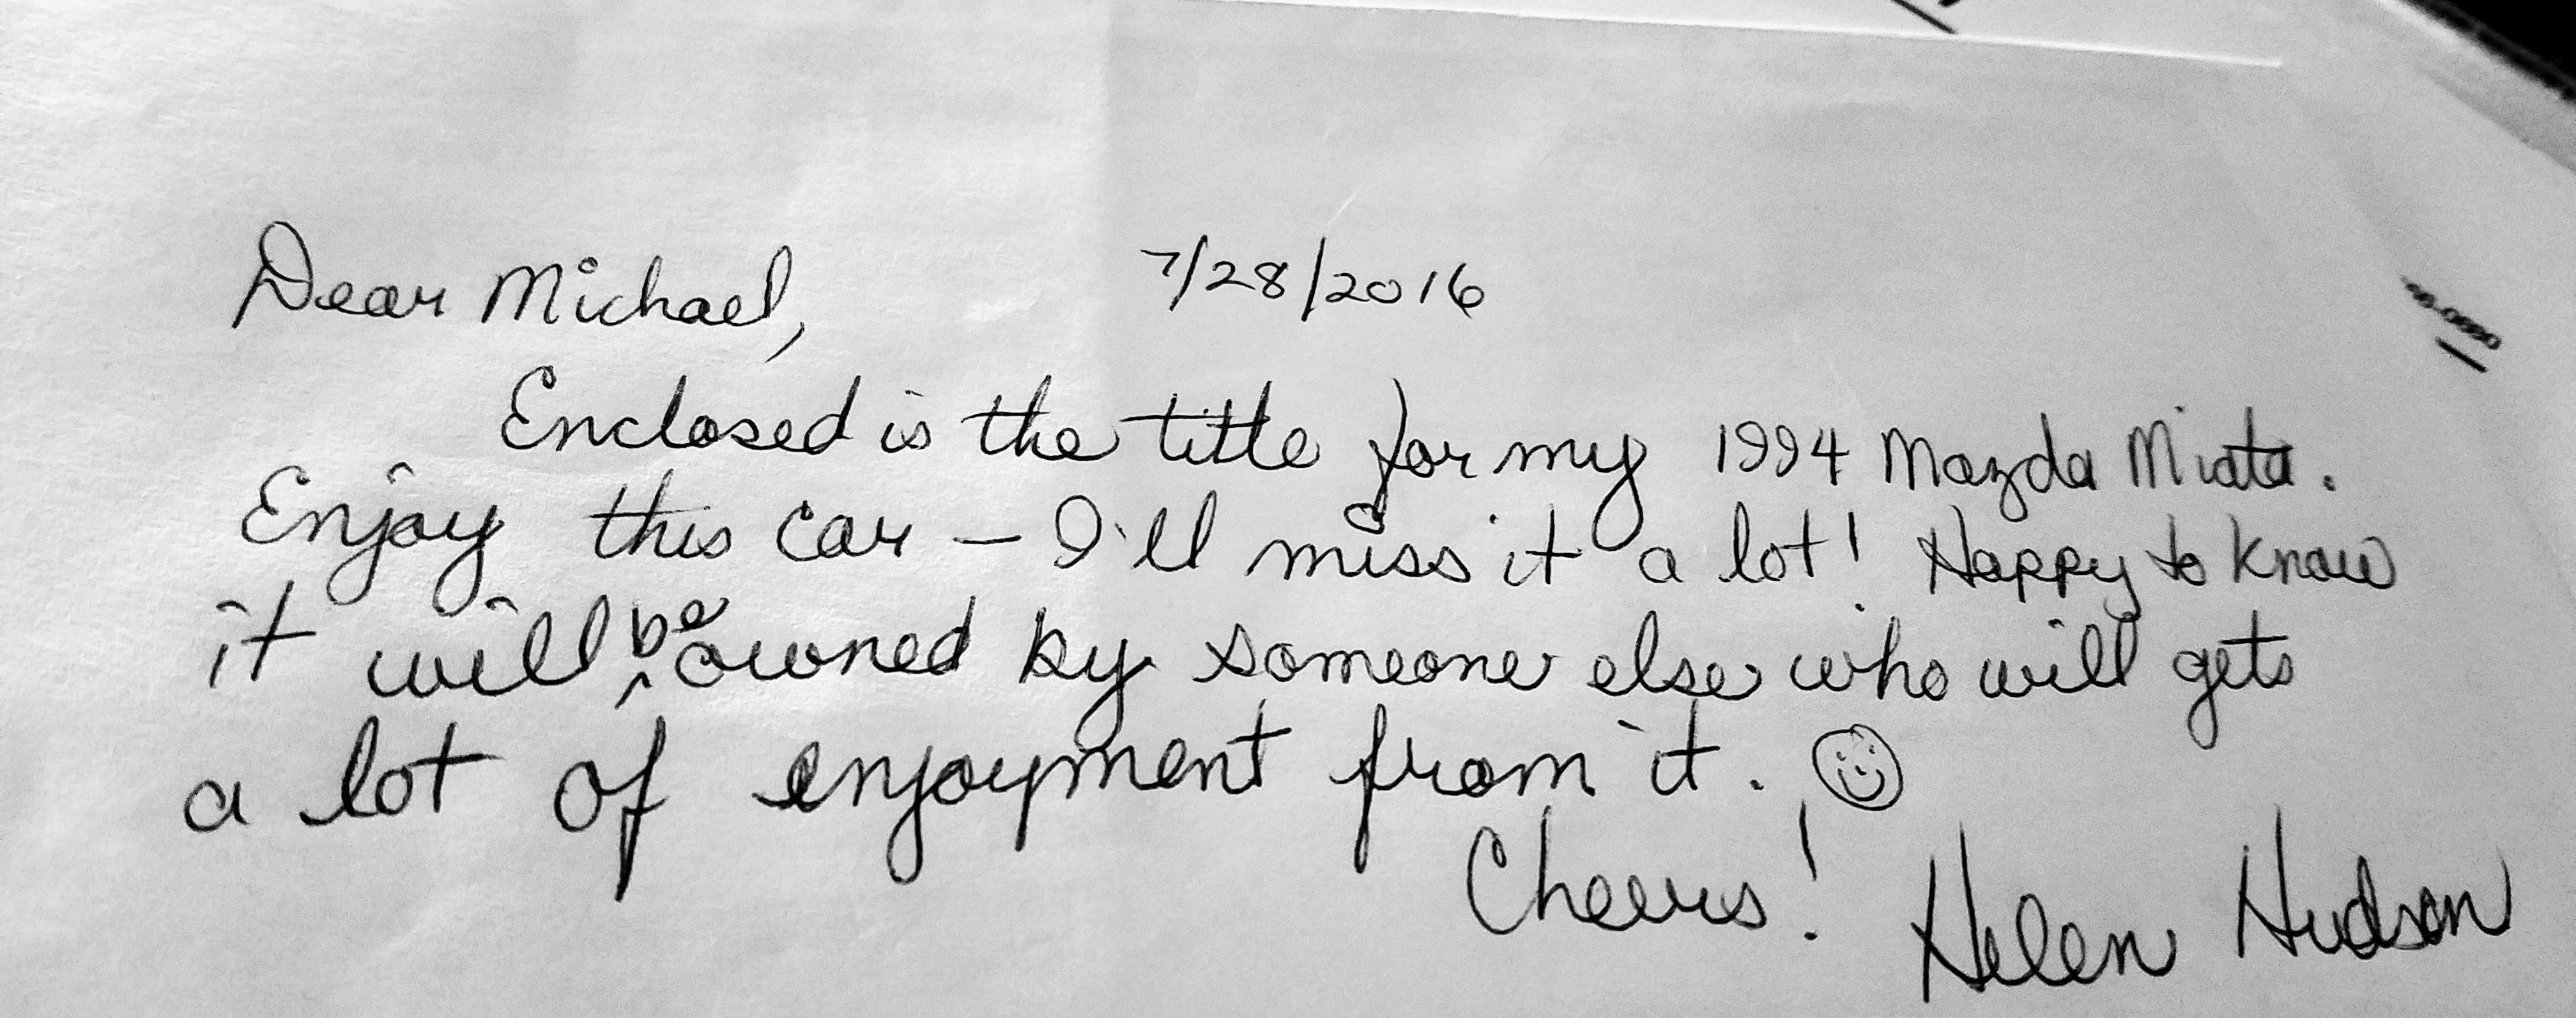 Dear Michael, 7/28/2016
Enclosed is the title for my 1994 Mazda Miata.
Enjoy this car – I'll miss it a lot! Happy to know
it will be owned by someone else who will gets
a lot of enjoyment from it. ☺
Cheers! Helen Hudson